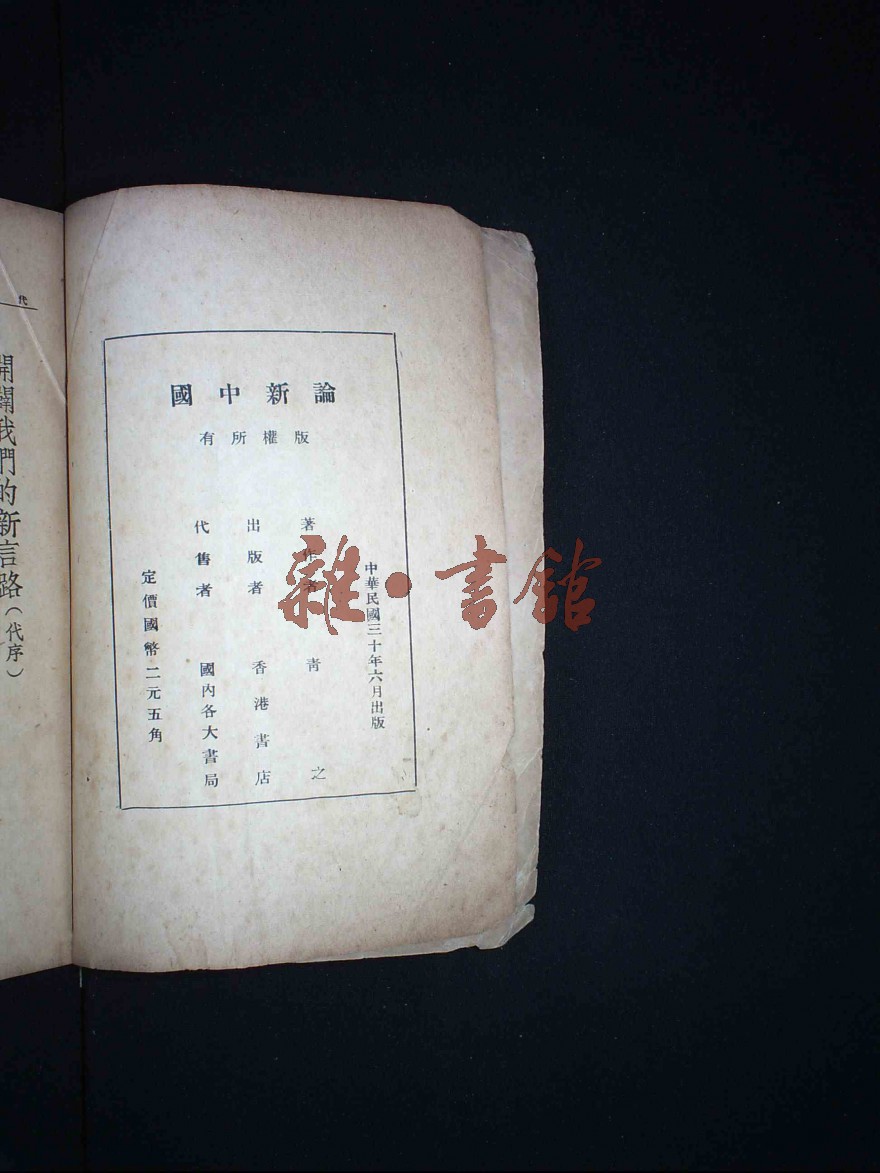 論新中國
版權所有
中華民國三十年六月出版
著作者 青之
出版者 香港書店
代售者 國內各大書局
定價國幣二元五角
代
開闢我們的新言路(代序)
雜·書館